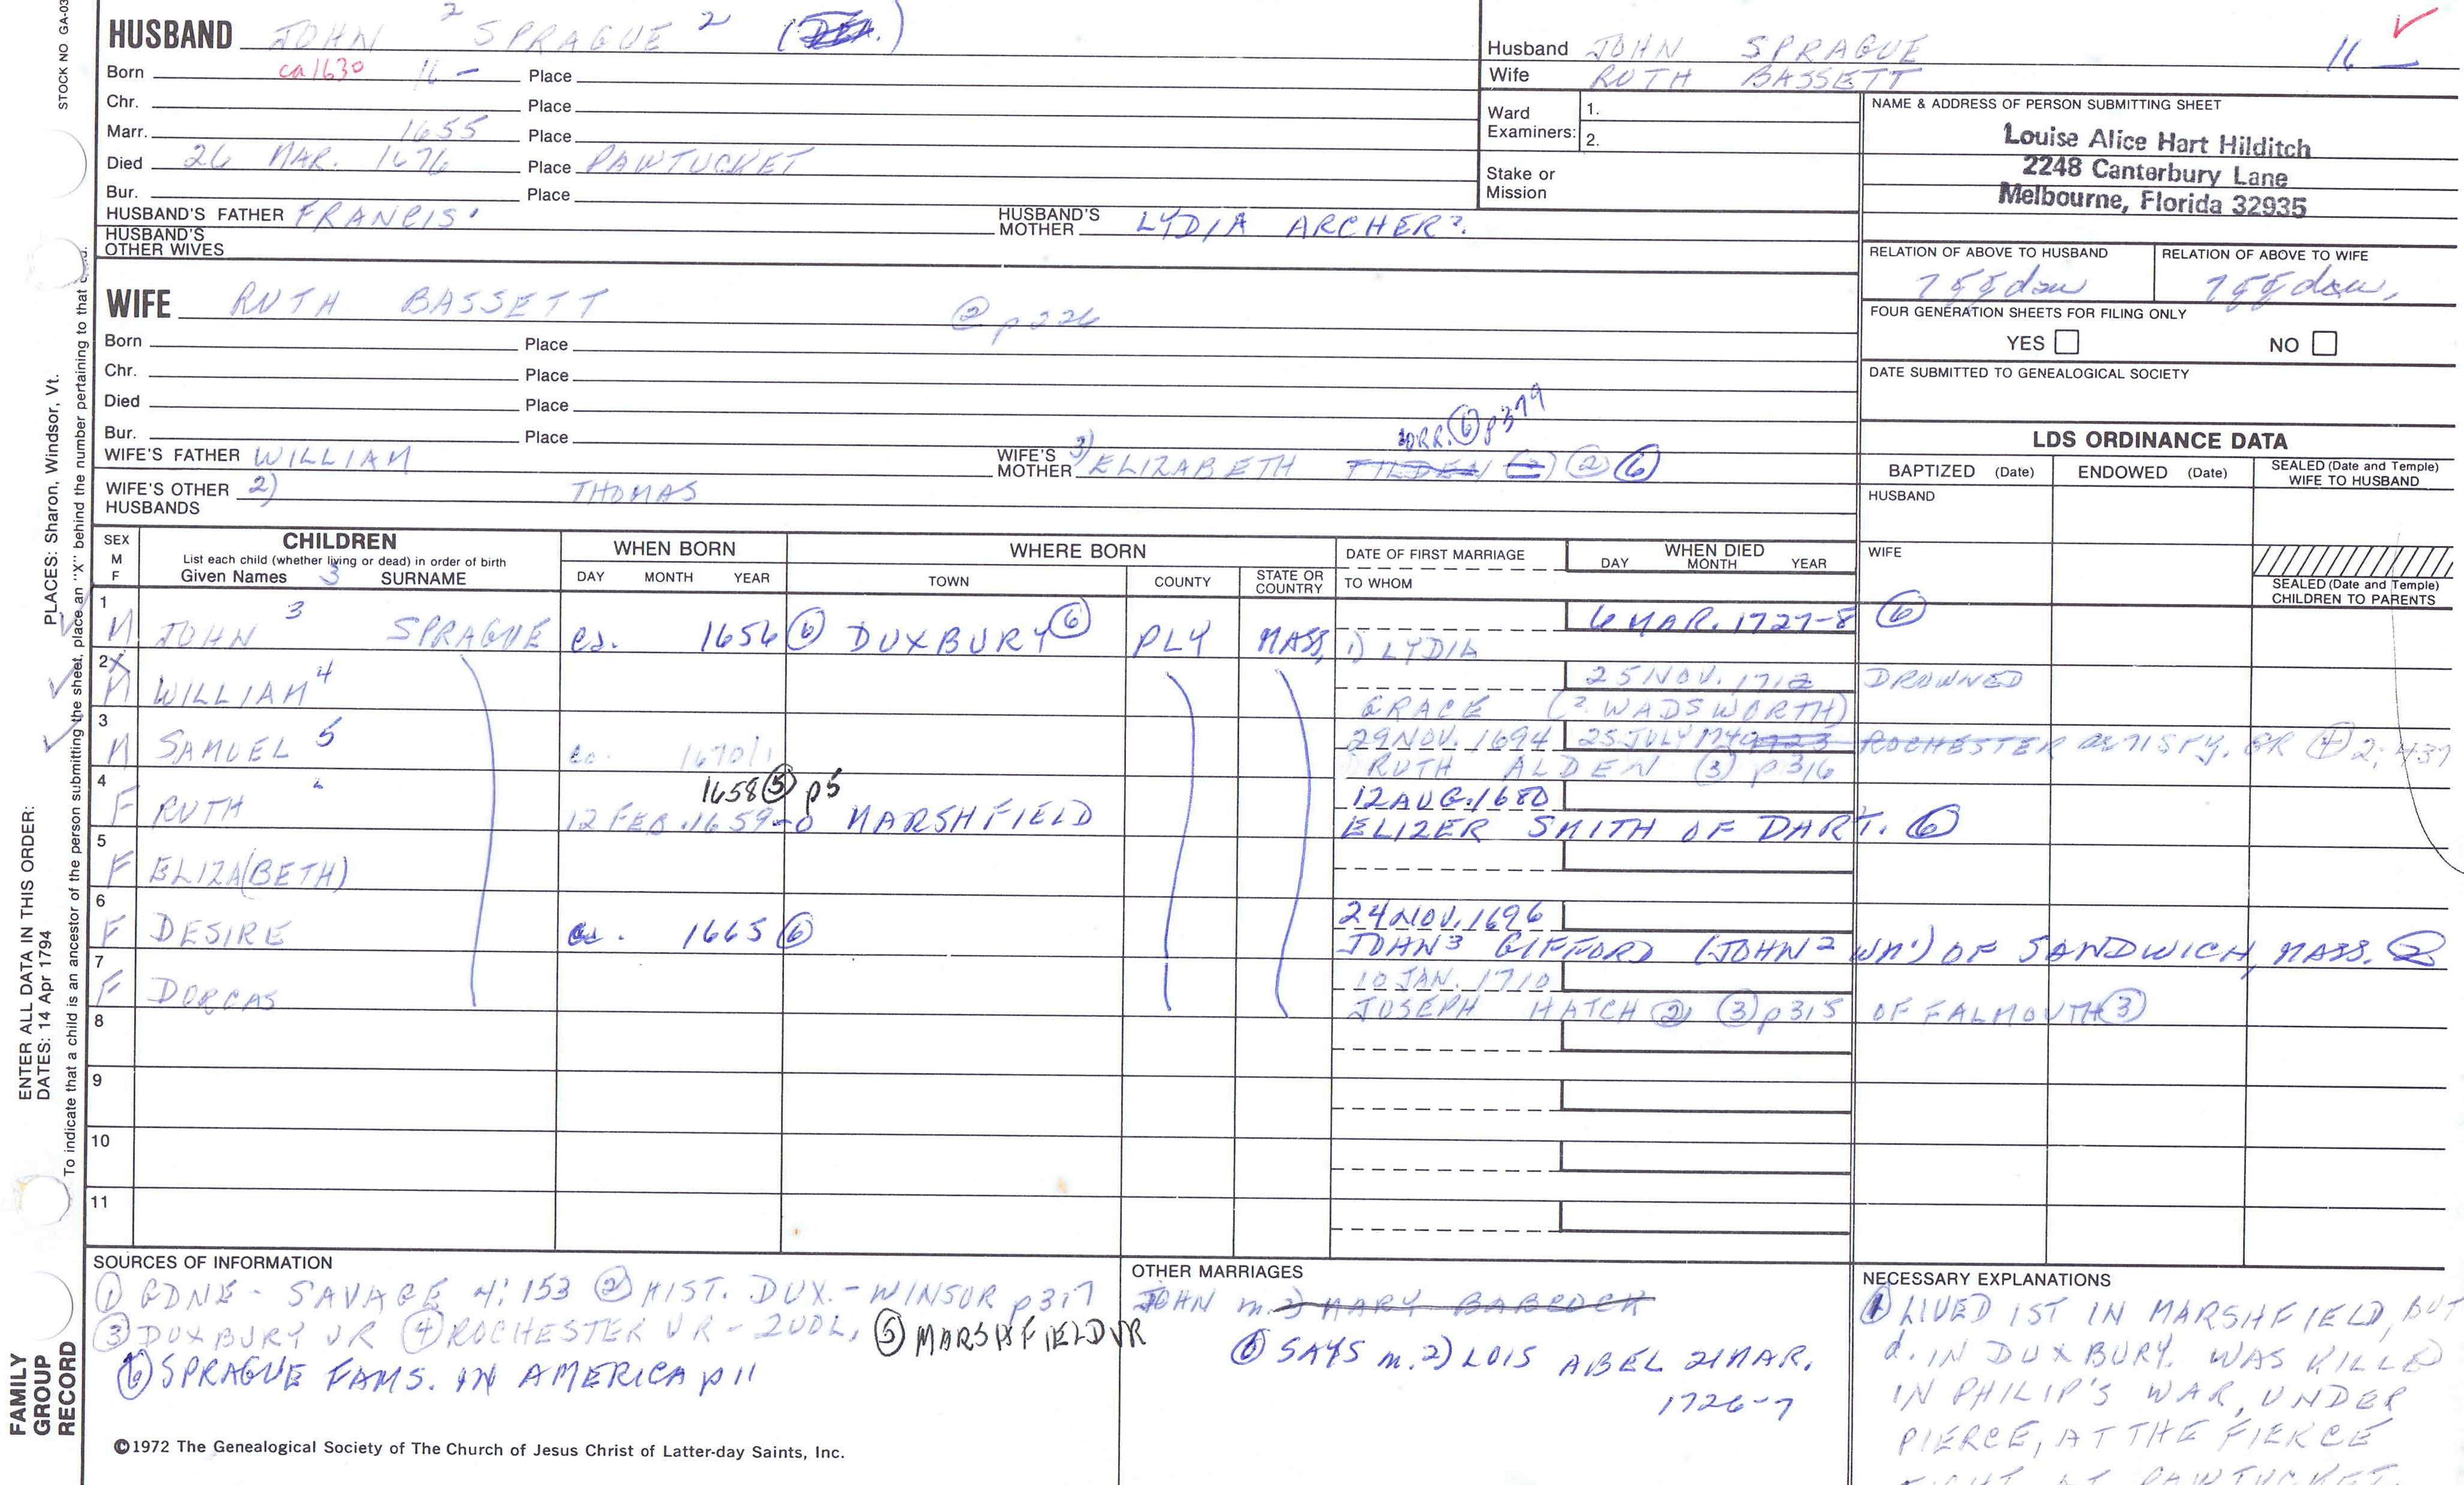 STOCK NO GA-03
HUSBAND JOHN ² SPRAGUE ²
Born ca 1630 16 - Place
Chr. Place
Marr. 1655 Place
Died 26 MAR. 1676 Place PAWTUCKET
Bur. Place
HUSBAND'S FATHER FRANCIS¹ HUSBAND'S MOTHER LYDIA ARCHER?.
HUSBAND'S OTHER WIVES
Husband JOHN SPRAGUE 16 —
Wife RUTH BASSETT
Ward Examiners: 1.
2.
Stake or Mission
NAME & ADDRESS OF PERSON SUBMITTING SHEET
Louise Alice Hart Hilditch
2248 Canterbury Lane
Melbourne, Florida 32935
RELATION OF ABOVE TO HUSBAND RELATION OF ABOVE TO WIFE
7ggdau 7ggdau.
FOUR GENERATION SHEETS FOR FILING ONLY
YES NO
DATE SUBMITTED TO GENEALOGICAL SOCIETY
WIFE RUTH BASSETT ② p226
Born Place
Chr. Place
Died Place
Bur. Place
⑥ p379
WIFE'S FATHER WILLIAM WIFE'S MOTHER ELIZABETH TILDEN ② ⑥
WIFE'S OTHER HUSBANDS 2) THOMAS
LDS ORDINANCE DATA
BAPTIZED (Date) ENDOWED (Date) SEALED (Date and Temple) WIFE TO HUSBAND
HUSBAND
WIFE
SEALED (Date and Temple) CHILDREN TO PARENTS
SEX M F CHILDREN WHEN BORN WHERE BORN DATE OF FIRST MARRIAGE WHEN DIED
List each child (whether living or dead) in order of birth
Given Names 3 SURNAME DAY MONTH YEAR TOWN COUNTY STATE OR COUNTRY TO WHOM DAY MONTH YEAR
1 6 MAR. 1727-8 ⑥
M JOHN 3 SPRAGUE ca. 1656 ⑥ DUXBURY ⑥ PLY MASS, 1) LYDIA
2 X 25 NOV. 1712 DROWNED
M WILLIAM 4 GRACE (? WADSWORTH)
3 29 NOV. 1694 25 JULY 1740 ROCHESTER 71 GR ④ 2; 437
M SAMUEL 5 ca. 1670/1 RUTH ALDEN ③ p316
4 1658 ⑤ p5 12 AUG. 1680
F RUTH 12 FEB. 1659-0 MARSHFIELD ELIZER SMITH OF DART. ⑥
5
F ELIZA(BETH)
6 24 NOV. 1696
F DESIRE ca. 1665 ⑥ JOHN³ GIFFORD (JOHN² WM¹) OF SANDWICH, MASS. ②
7 10 JAN. 1710
F DORCAS JOSEPH HATCH ② ③ p315 OF FALMOUTH ③
8
9
10
11
SOURCES OF INFORMATION
① GDNE - SAVAGE 4: 153 ② HIST. DUX. - WINSOR p317
③ DUXBURY VR ④ ROCHESTER VR - 2 VOL, ⑤ MARSHFIELD VR
⑥ SPRAGUE FAMS. IN AMERICA p11
OTHER MARRIAGES
JOHN m. 2) MARY BABCOCK
⑥ SAYS m. 2) LOIS ABEL 21 MAR.
1726-7
NECESSARY EXPLANATIONS
① LIVED 1ST IN MARSHFIELD, BUT
d. IN DUXBURY. WAS KILLED
IN PHILIP'S WAR, UNDER
PIERCE, AT THE FIERCE
FIGHT AT PAWTUCKET.
©1972 The Genealogical Society of The Church of Jesus Christ of Latter-day Saints, Inc.
FAMILY GROUP RECORD
ENTER ALL DATA IN THIS ORDER:
DATES: 14 Apr 1794
PLACES: Sharon, Windsor, Vt.
To indicate that a child is an ancestor of the person submitting the sheet, place an "X" behind the number pertaining to that